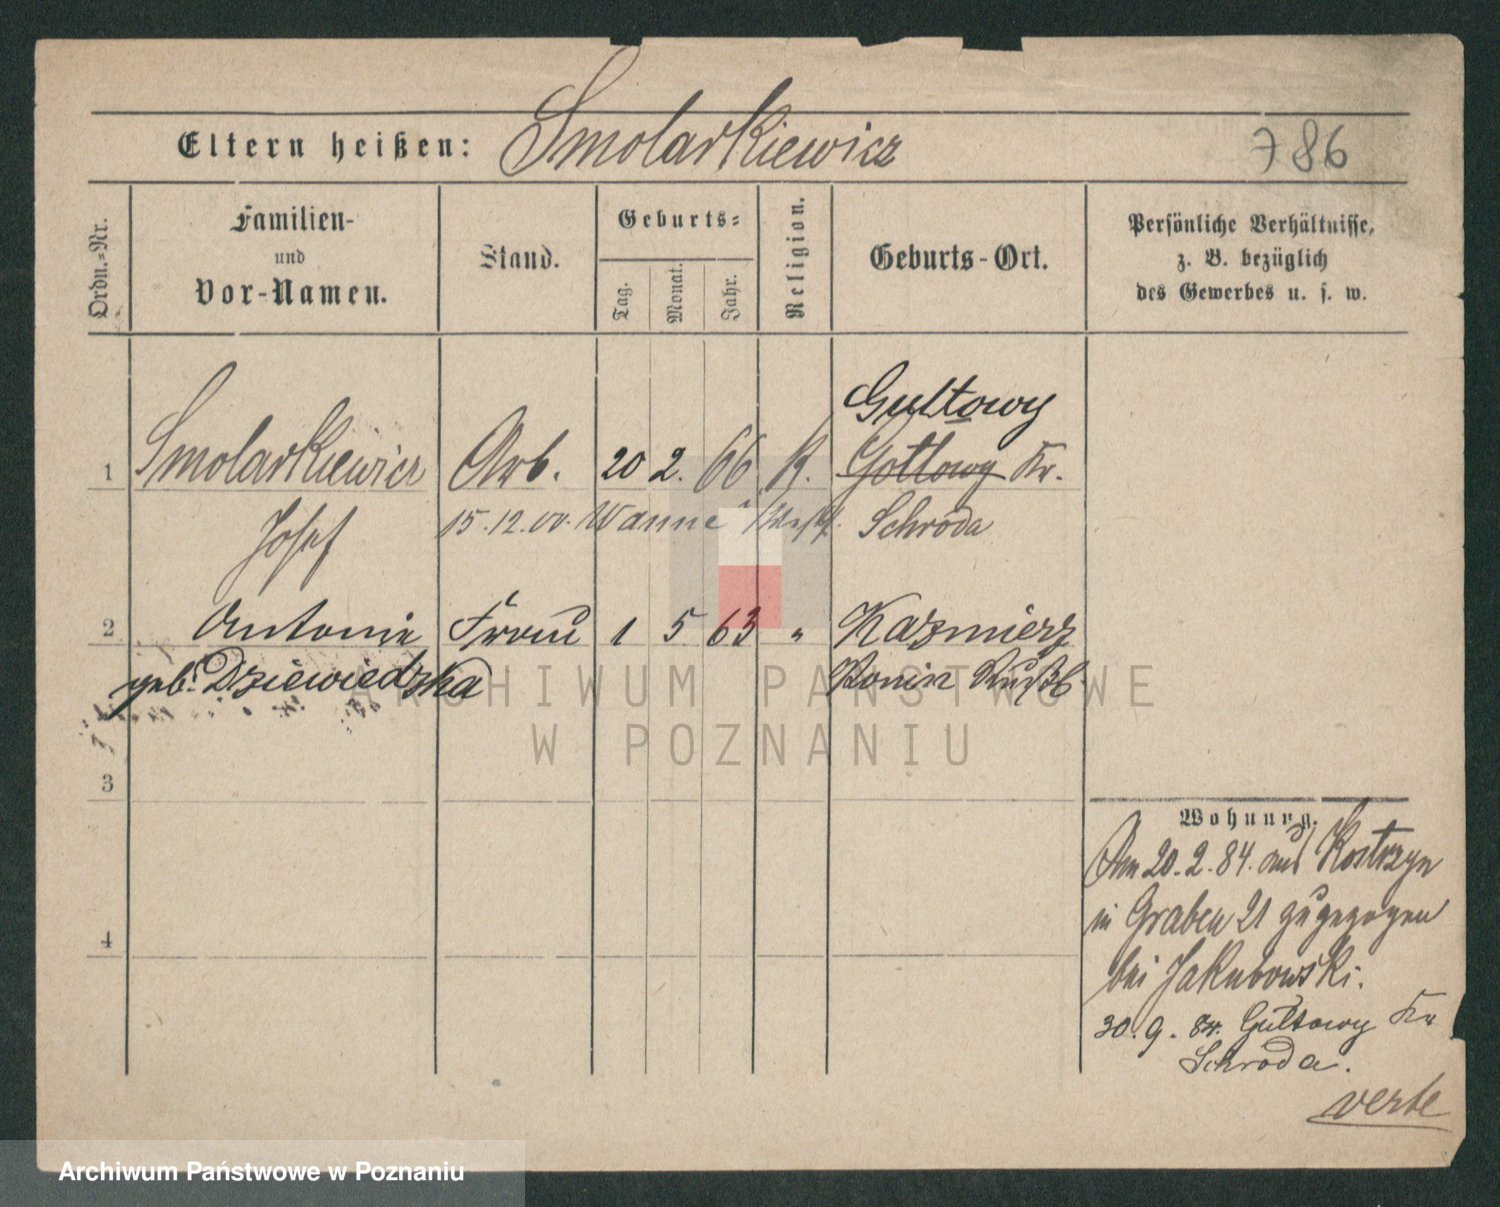 Eltern heißen: Smolarkiewicz 786
Ordn.-Nr.
Familien-
und
Vor-Namen.
Stand.
Geburts-
Tag.
Monat.
Jahr.
Religion.
Geburts-Ort.
Persönliche Verhältnisse,
z. B. bezüglich
des Gewerbes u. s. w.
Gultowy
1 Smolarkiewicz Arb. 20 2. 66 k. Goltowy Kr.
Josef 15.12.00. Wanne Schroda
2 Antonie Frau 1 5 63 " Kazmierz
geb. Dziewiedzka Konin Rußl.
3
4
Wohnung.
Am 20.2.84. aus Kostrzyn
in Graben 21 zugezogen
bei Jakubowski.
30.9.84. Gultowy Kr
Schroda.
verte
ARCHIWUM PAŃSTWOWE
W POZNANIU
Archiwum Państwowe w Poznaniu